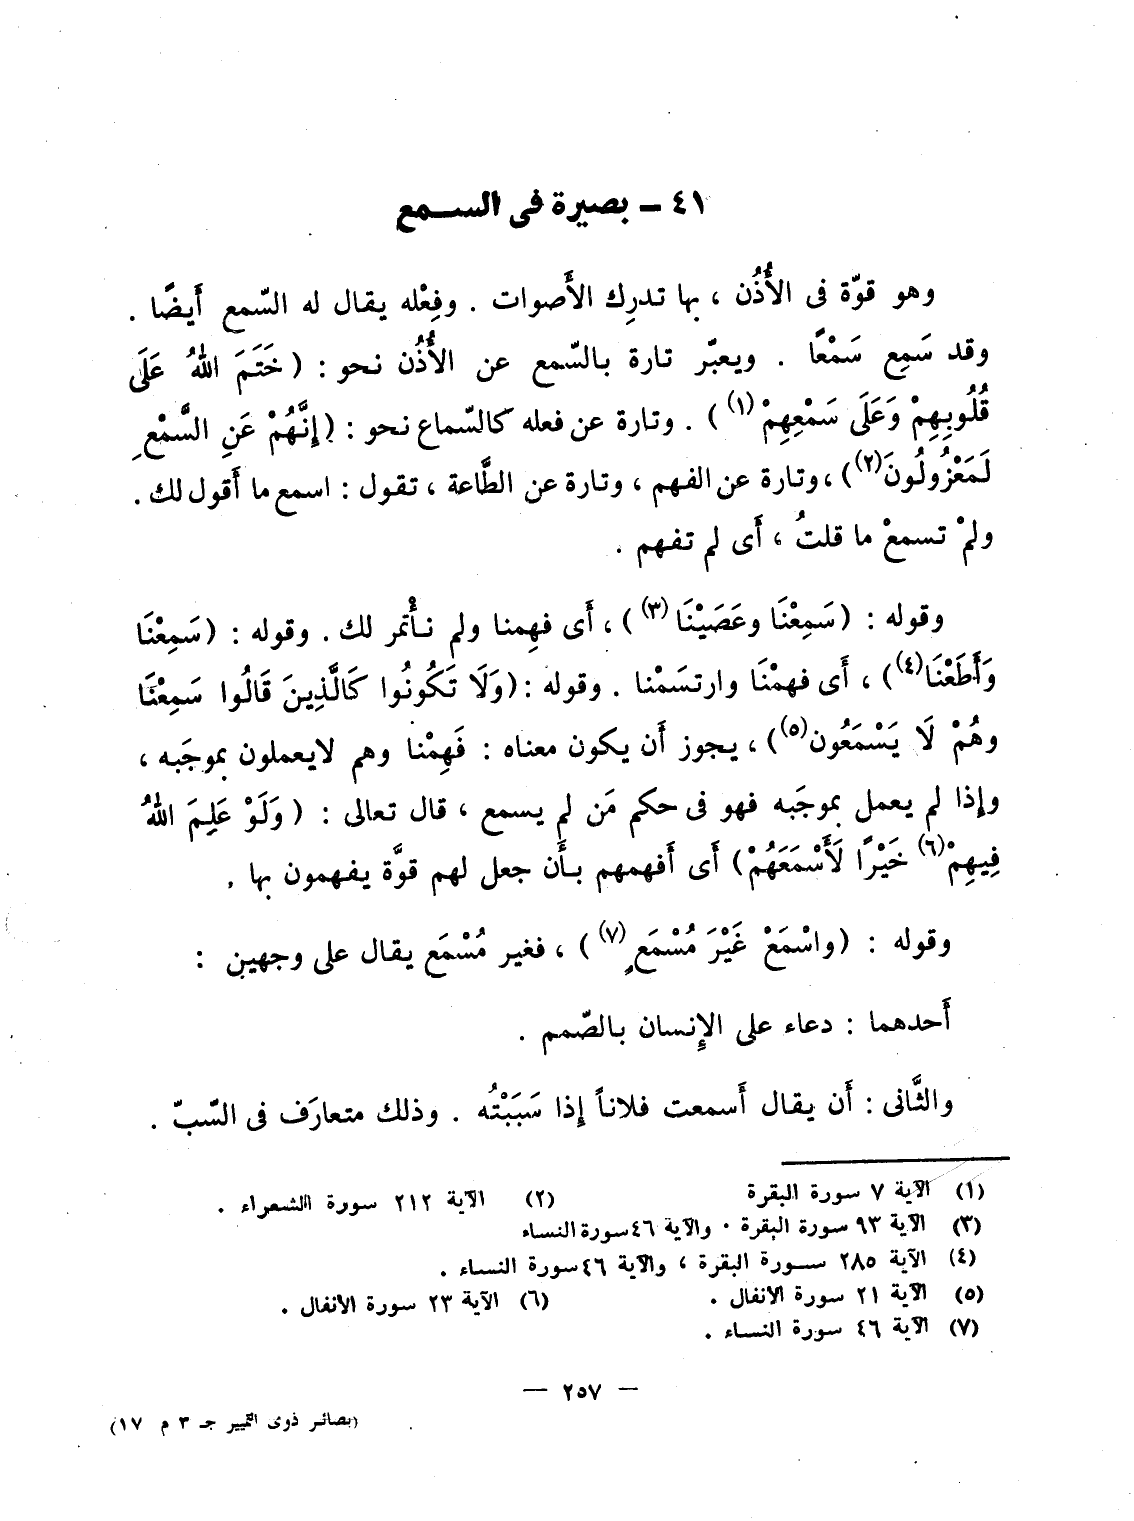 ٤١ – بصيرة فى الســمع
وهو قوّة فى الأُذُن ، بها تدرِك الأَصوات . وفِعْله يقال له السّمع أَيضًا .
وقد سَمِع سَمْعًا . ويعبّر تارة بالسّمع عن الأُذُن نحو : ( خَتَمَ اللهُ عَلَى
قُلُوبِهِمْ وَعَلَى سَمْعِهِمْ(١) ) . وتارة عن فعله كالسّماع نحو : (إِنَّهُمْ عَنِ السَّمْعِ
لَمَعْزُولُونَ(٢)) ، وتارة عن الفهم ، وتارة عن الطَّاعة ، تقول : اسمع ما أَقول لك .
ولمْ تسمعْ ما قلتُ ، أَى لم تفهم .
وقوله : (سَمِعْنَا وعَصَيْنَا (٣) ) ، أَى فهِمنا ولم نأْتمر لك . وقوله : (سَمِعْنَا
وَأَطَعْنَا(٤)) ، أَى فهمْنَا وارتسَمْنا . وقوله : (وَلَا تَكُونُوا كَالَّذِينَ قَالُوا سَمِعْنَا
وهُمْ لَا يَسْمَعُون(٥)) ، يجوز أَن يكون معناه : فَهِمْنا وهم لايعملون بموجَبه ،
وإِذا لم يعمل بموجَبه فهو فى حكم مَن لم يسمع ، قال تعالى : ( وَلَوْ عَلِمَ اللهُ
فِيهِمْ(٦) خَيْرًا لَأَسْمَعَهُمْ) أَى أَفهمهم بأَن جعل لهم قوَّة يفهمون بها .
وقوله : (واسْمَعْ غَيْرَ مُسْمَعٍ (٧) ) ، فغير مُسْمَع يقال على وجهين :
أَحدهما : دعاء على الإِنسان بالصّمم .
والثَّانى : أَن يقال أَسمعت فلاناً إِذا سَبَبْتُه . وذلك متعارَف فى السّبّ .
(١) الآية ٧ سورة البقرة (٢) الآية ٢١٢ سورة الشعراء .
(٣) الآية ٩٣ سورة البقرة . والآية ٤٦ سورة النساء
(٤) الآية ٢٨٥ ســورة البقرة ، والآية ٤٦ سورة النساء .
(٥) الآية ٢١ سورة الأنفال . (٦) الآية ٢٣ سورة الأنفال .
(٧) الآية ٤٦ سورة النساء .
— ٢٥٧ —
(بصائر ذوى التمييز جـ ٣ م ١٧)